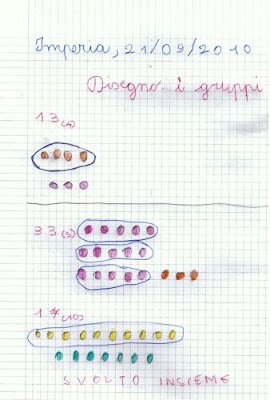 Imperia, 21/09/2010
Disegno i gruppi
13(4)
33(5)
17(10)
SVOLTO INSIEME